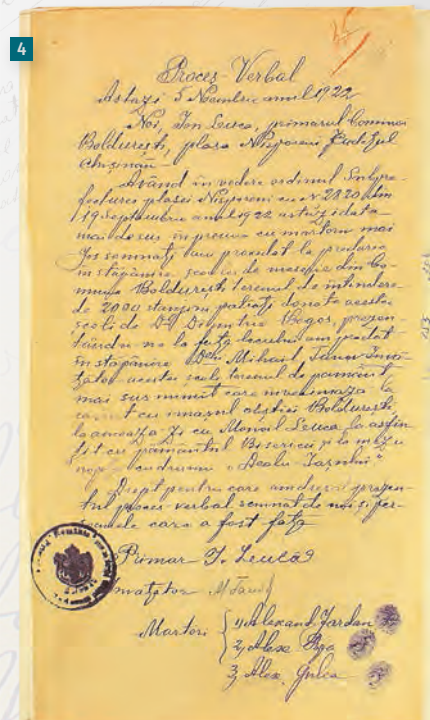 4
Proces-Verbal
Astazi 5 Noembrie anul 1922
Noi, Ion Leuca, primarul Comunei
Boldurești, plasa Nisporeni Județul
Chișinău
Având în vedere ordinul Subpre-
fecturei plasei Nisporeni cu No 2820 din
19 Septembrie anul 1922 astăzi data
mai de sus împreuna cu martorii mai
jos semnați am procedat la predarea
în stăpânire școalei de meserie din Co-
muna Boldurești terenul de întindere
de 2000 stanjeni patrați donate acestei
școli de Dl Dimitrie Bogos, prezen-
tându-ne la fața locului am predat
în stăpânire Dlui Mihail Învă-
țător acestei școli terenul de pământ
mai sus numit care se
cu imasul obștiei Boldurești
la amiaza zi cu Manoil Leuca la asfin-
țit cu pământul Bisericii și la miezu
nopții cu drumu "Dealu
Drept pentru care am dresat prezen-
tul proces verbal semnat de noi și per-
soanele care a fost față
Primar I. Leuca
Învațator M
Martori 1, Alexand. Iardan
2, Alexe
3, Alex. Gulea